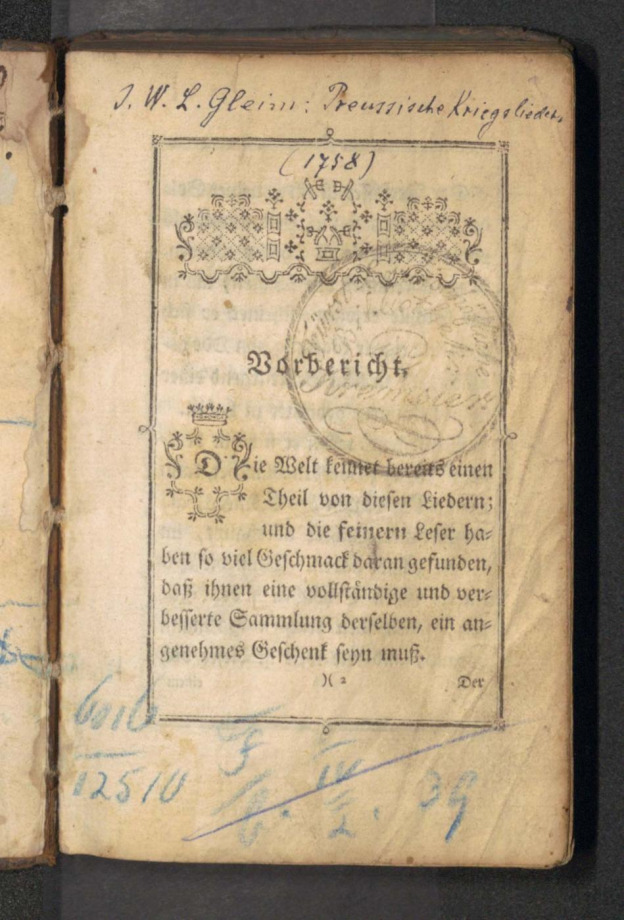 J. W. L. Gleim: Preussische Kriegslieder,
(1758)
Vorbericht.
Die Welt kennet bereits einen
Theil von diesen Liedern;
und die feinern Leser ha-
ben so viel Geschmack daran gefunden,
daß ihnen eine vollständige und ver-
besserte Sammlung derselben, ein an-
genehmes Geschenk seyn muß.
)( 2 Der
12510
39